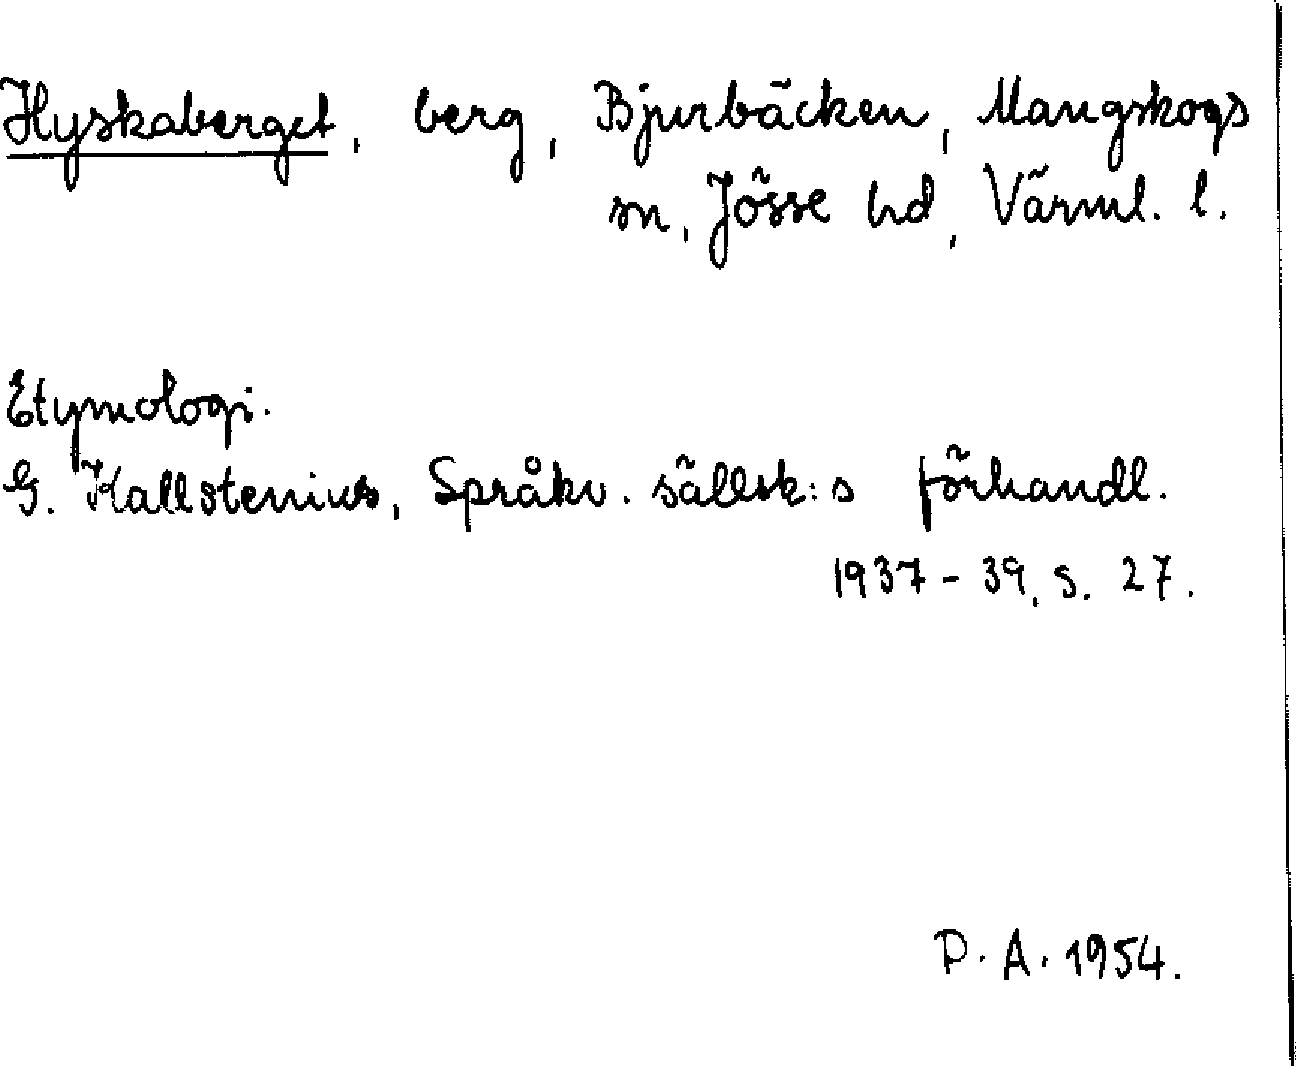 Hyskaberget, berg, Bjurbäcken, Mangskogs
sn, Jösse hd, Värml. l.
Etymologi.
G. Kallstenius, Språkv. sällsk:s förhandl.
1937-39, s. 27.
P. A. 1954.